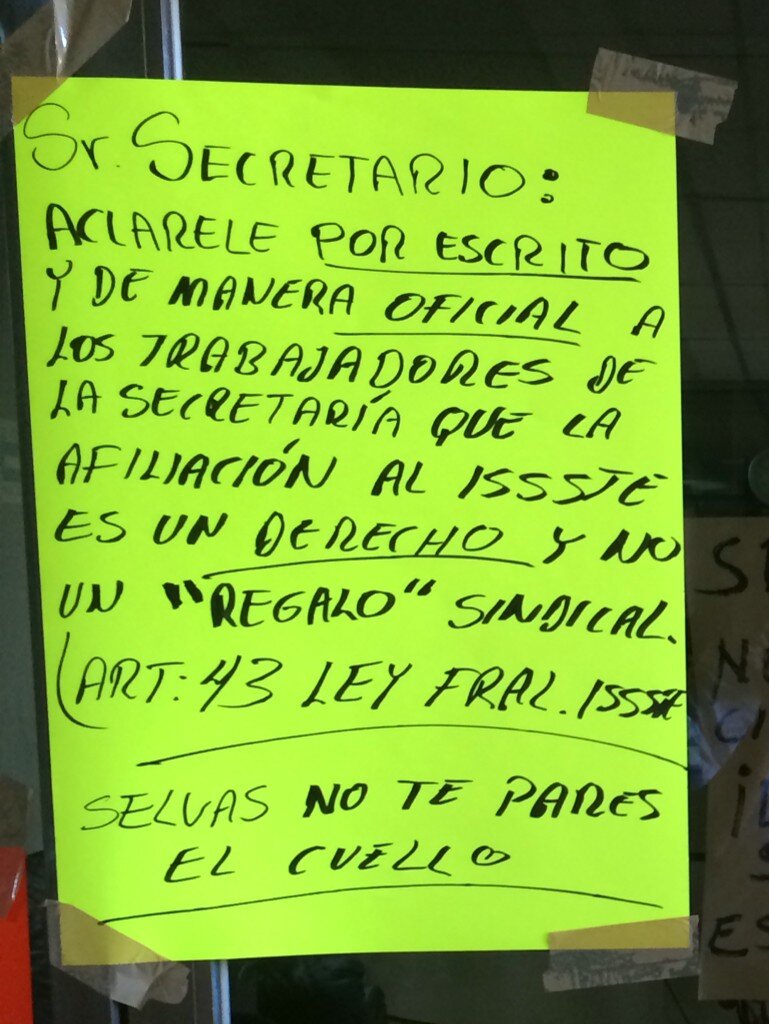 Sr. SECRETARIO:
ACLARELE POR ESCRITO
Y DE MANERA OFICIAL A
LOS TRABAJADORES DE
LA SECRETARÍA QUE LA
AFILIACIÓN AL ISSSTE
ES UN DERECHO Y NO
UN "REGALO" SINDICAL.
(ART: 43 LEY FRAL. ISSSTE
SELVAS NO TE PARES
EL CUELLO